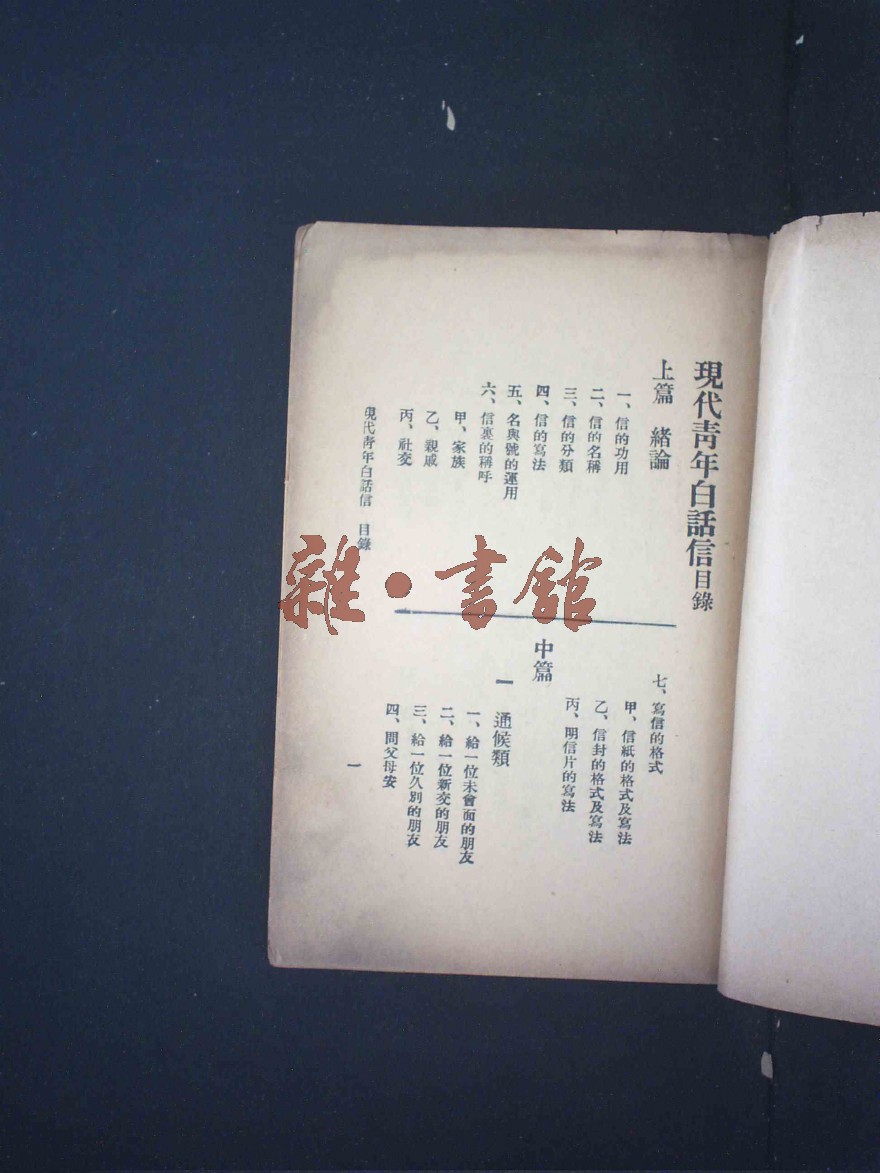 現代靑年白話信目錄
上篇　緒論
一、信的功用
二、信的名稱
三、信的分類
四、信的寫法
五、名與號的運用
六、信裏的稱呼
甲、家族
乙、親戚
丙、社交
七、寫信的格式
甲、信紙的格式及寫法
乙、信封的格式及寫法
丙、明信片的寫法
中篇
一　通候類
一、給一位未會面的朋友
二、給一位新交的朋友
三、給一位久別的朋友
四、問父母安
現代靑年白話信　目錄
一
雜·書館